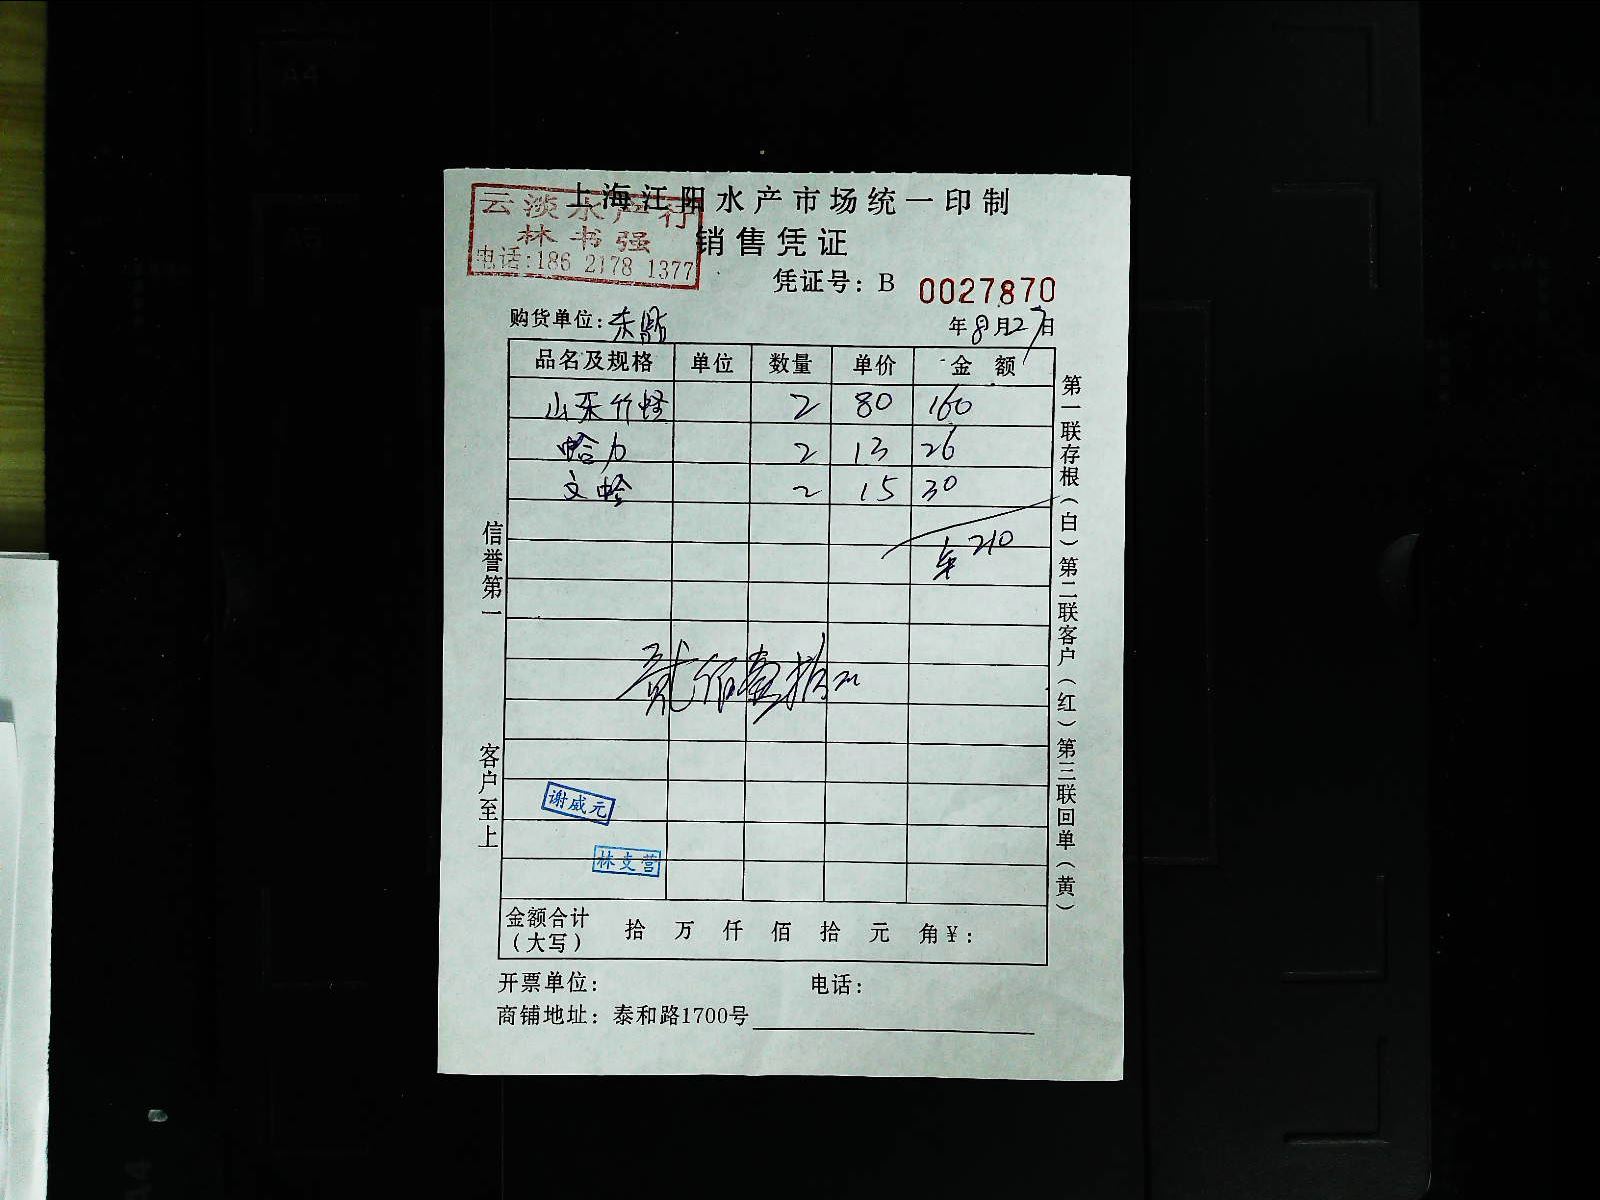 上海江阳水产市场统一印制
云淡水产行
林书强
电话:186 2178 1377
销售凭证
凭证号: B 0027870
购货单位: 东鼎
年8月27日
品名及规格 单位 数量 单价 金额
山东竹蛏 2 80 160
哈力 2 13 26
文蛤 2 15 30
210
贰佰壹拾
谢威元
林支营
金额合计(大写) 拾 万 仟 佰 拾 元 角 ¥:
开票单位: 电话:
商铺地址: 泰和路1700号
信誉第一 客户至上
第一联存根(白)第二联客户(红)第三联回单(黄)
A4
A5